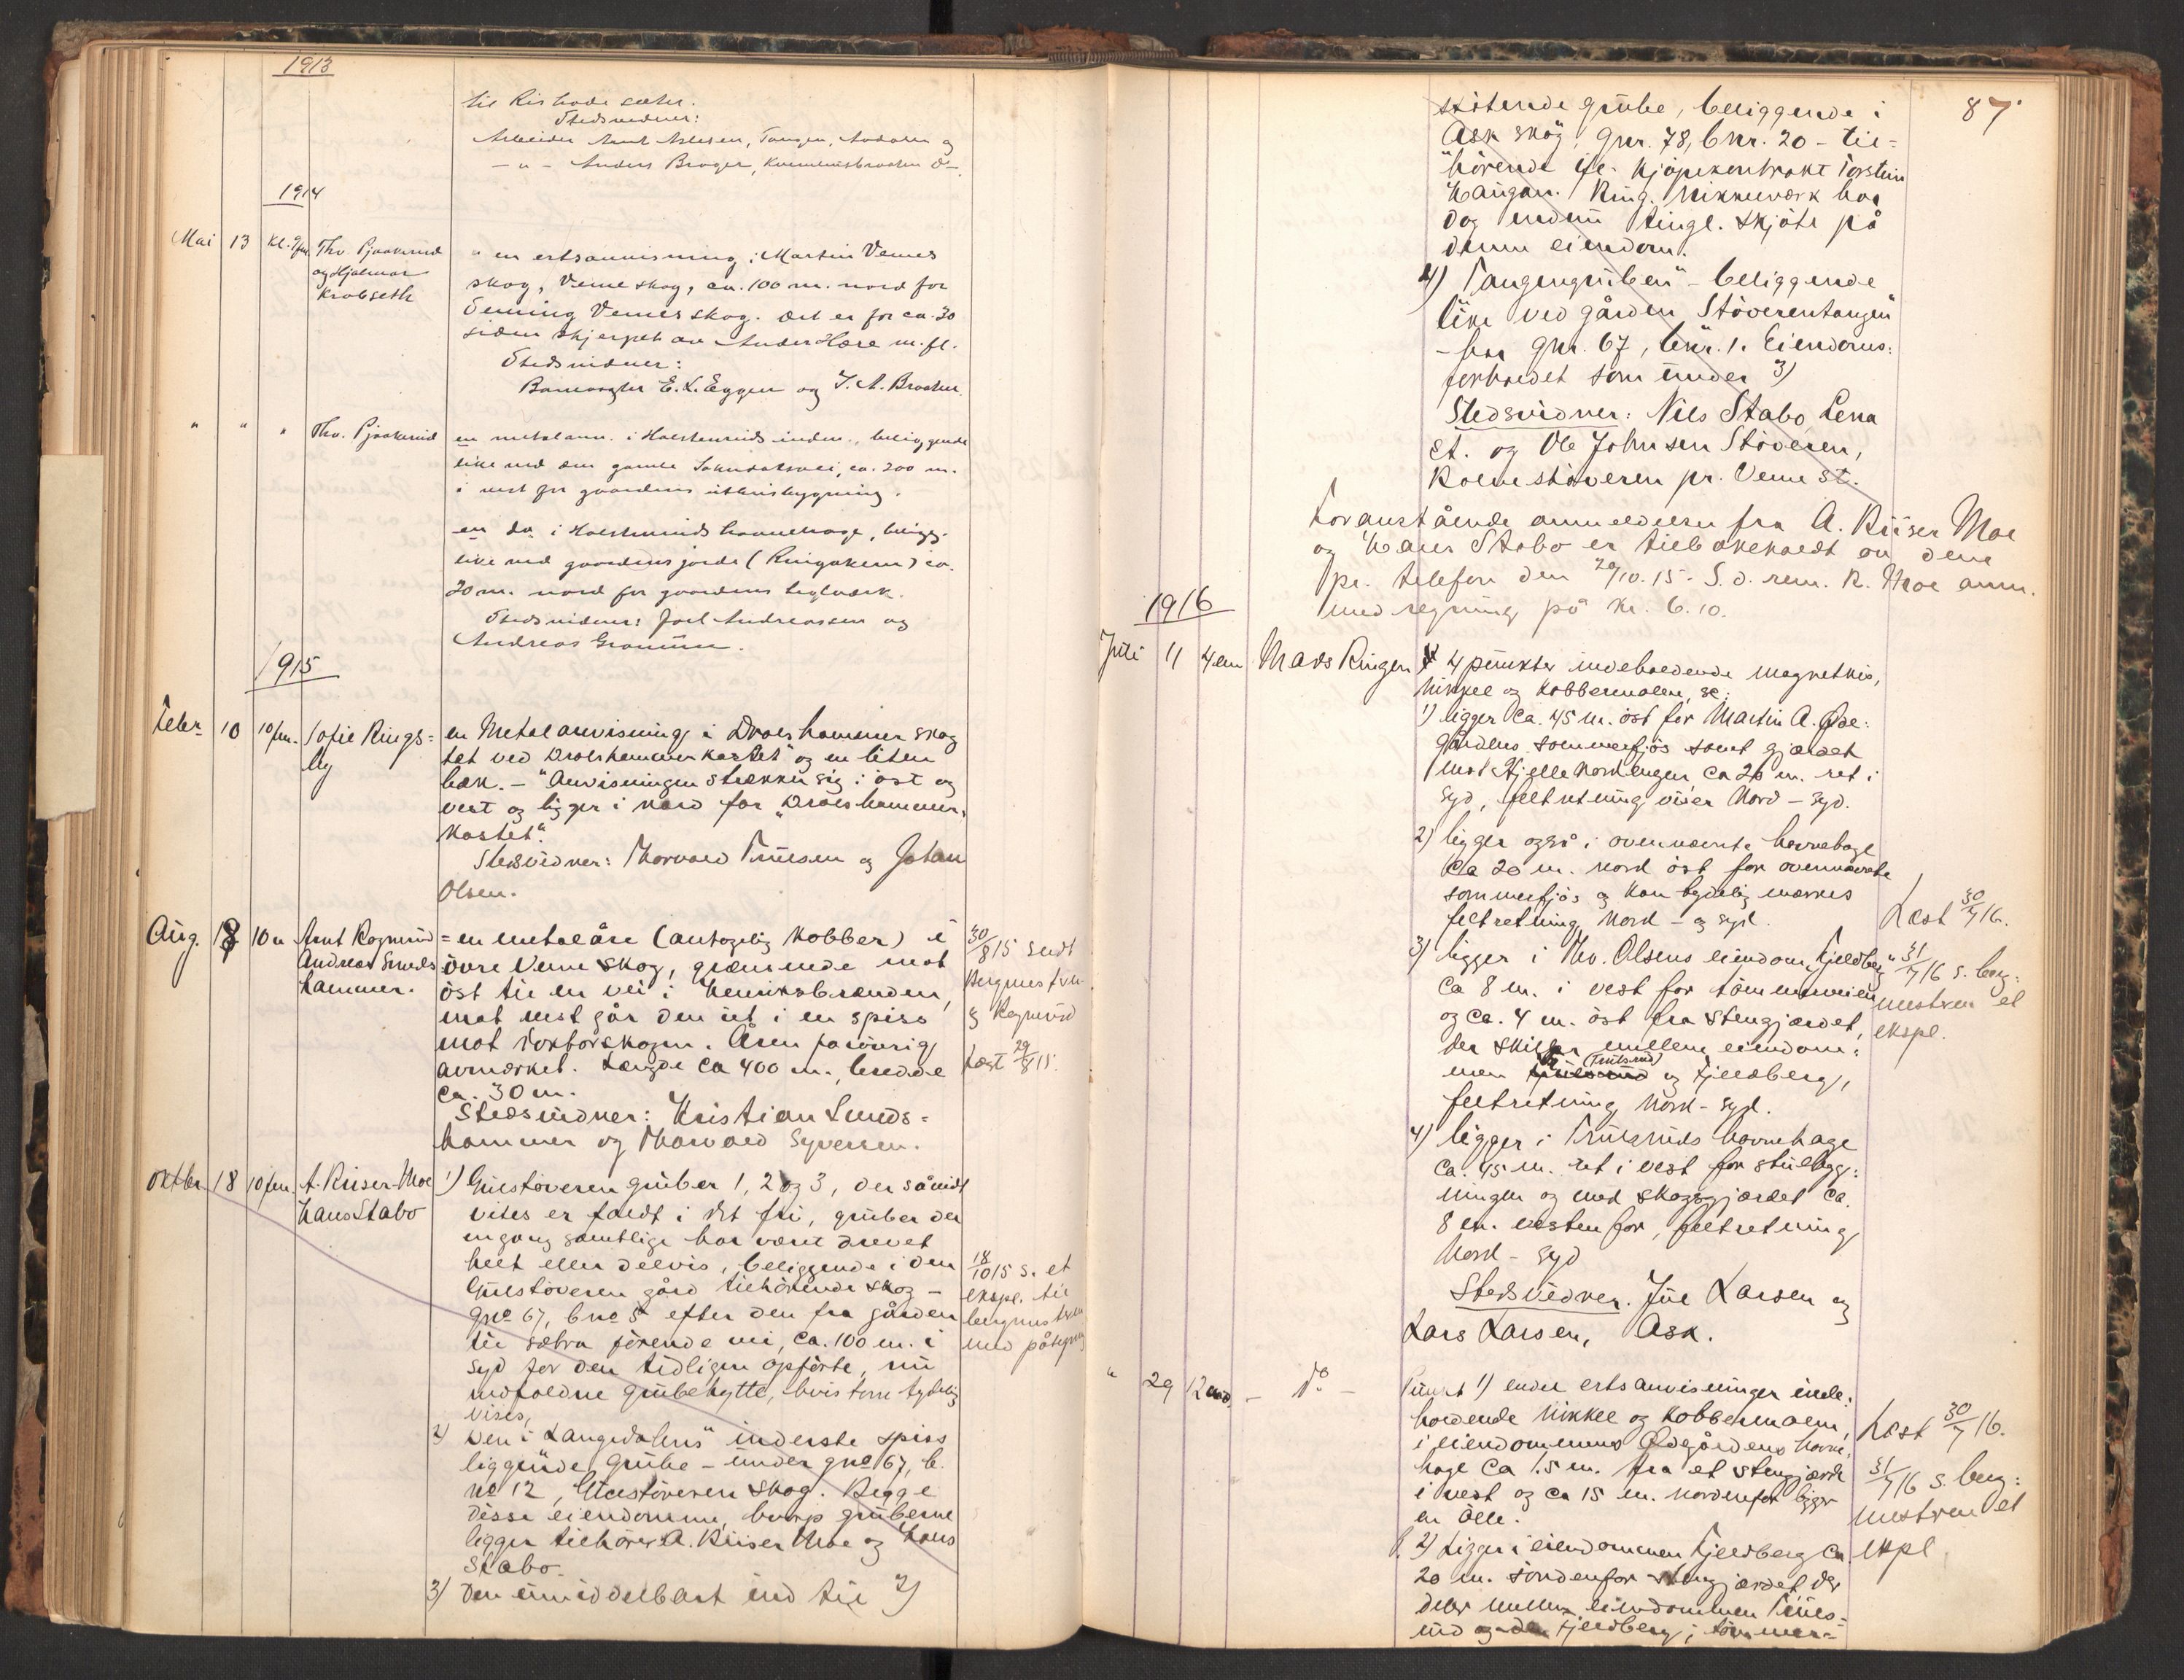 1913
til Rishode sæter.
Stedsvidner:
Arbeider Arnt Nilsen, Tangen, Aadalen og
— „ — Anders Brager,
1914
Mai 13 Kl. 9 fm. Thv. Pjaakerud
og Hjalmar
Krobseth
en ertsanvisning i Martin Vemes
skog, Veme skog, ca. 100 m. nord for
Vemes skog. Det er for ca. 30
siden skjerpet av Anders Hære m. fl.
Stedsvidner:
E. L. Eggen og J. A. Braaten.
" " " Thv. Pjaakerud
en metalanv. i Holsteinruds indm., beliggende
like ved den gamle Soknedalsvei, ca. 200 m.
i vest for gaardens uthusbygning.
en do i Holsteinruds havnehage, beligg.
like ved gaardens jorde (Ringakeren) ca.
20 m. nord for gaardens teglværk.
Stedsvidner: Joel Andreassen og
Andreas
1915
Febr. 10 10 fm. Sofie Rings=
by
en Metalanvisning i Drolshammer skog
tæt ved "Drolshammerkastet" og en liten
bæk. - "Anvisningen strækker sig i øst og
vest og ligger i nord for „Drolshammer-
kastet".
Stedsvidner: Thorvald Trulsen og Johan
Olsen.
Aug. 18 10 fm Arnt Rognerud
Andreas Smeds
hammer.
= en metalåre (antagelig Kobber) i
øvre Veme skog, grænsende mot
øst til en vei i Henriksbraaten,
mot vest går den ut i en spiss
mot . Åren forøvrig
avmerket. Længde ca 400 m., bredde
ca. 30 m.
Stedsvidner: Kristian Smeds=
hammer og Thorvald Syversen.
30/8 15 sendt
Bergmesteren
& Rognerud
Læst 29/8 15.
Oktbr. 18 10 fm. A. Riiser-Moe
Hans Stabo
1) Gulstøveren gruber 1, 2 og 3, der såvidt
vites er faldt i det fri, gruber der
engang samtlige har været drevet
helt eller delvis, beliggende i den
Gulstøveren gård tilhørende skog -
gno 67, bno 5 efter den fra gården
til sætra førende vei, ca. 100 m. i
syd for den tidligere opførte, nu
nedfaldne grubehytte, hvis tomt tydelig
vises,
2) Den i "Langedalens" inderste spiss
liggende grube - under gno 67, b.
no 12, Gulstøveren skog. Begge
disse eiendomme, hvorp gruberne
ligger tilhører A. Riiser Moe og Hans
Stabo.
3) Den umiddelbart ind til 2)
18/10 15 s. et
ekspl. til
bergmesteren
med påtegning
87.
støtende grube, beliggende i
Ask skog, gnr. 78, bnr. 20 - til=
hørende ifl. kjøpekontrakt Torstein
Haugan. Ring. Nikkelværk har
dog endnu tingl. skjøte på
denne eiendom.
4) "Tangengruben" - beliggende
like ved gården "Støverentangen"
- har gnr. 67, bnr. 1. Eiendoms=
forholdet som under 3)
Stedsvidner: Nils Stabo Lena
st. og Ole Johnsen Støveren,
Rolvestøveren pr. Veme st.
Foranstående anmeldelser fra A. Riiser Moe
og Hans Stabo er tilbakekaldt av dem
pr. telefon den 20/10.15. S. d. rem. R. Moe anm.
med regning på Kr. 6.10.
1916
Juli 11 4 em Mads Ringen
4 punkter indeholdende magnetkis,
Nikkel og Kobbermalm, se:
1) ligger ca. 45 m. øst for Martin A. Øde=
gårdens sommerfjøs samt gjærdet
mot Hjelle ca 20 m. ret i
syd, feltretning viser Nord - Syd.
2) ligger også i ovennævnte havnehage
ca 20 m. nord øst for ovennævnte
sommerfjøs og kan tydelig merkes
feltretning Nord - og syd.
3) ligger i Thv. Olsens eiendom Fjeldberg
ca 8 m. i vest for tømmerveien
og ca. 4 m. øst fra stengjærdet,
der skiller mellem eiendom=
men (Trulsrud) og Fjeldberg,
feltretning Nord - Syd.
4) ligger i Trulsruds havnehage
ca. 45 m. ret i vest for stuebyg=
ningen og med skogsgjærdet ca.
8 m. vesten for, feltretning
Nord - Syd
Stedsvidner. Jul Larsen og
Lars Larsen, Ask.
Læst 30/7 16.
" 31/7 16 s. berg=
mestren et
ekspl.
" 29 12 md. — do —
Punkt 1) ender ertsanvisninger inde=
holdende Nikkel og Kobbermalm,
i eiendommens Ødegårdens havne=
hage ca 1.5 m. fra et stengjærde
i vest og ca 15 m. nordenfor ligger
en
2) Ligger i eiendommen Fjeldberg ca.
20 m. søndenfor stengjærdet der
deler mellem eiendommen Truls=
rud og Fjeldberg i tømmer=
Læst 30/7 16.
31/7 16 s. berg=
mestren et
ekspl